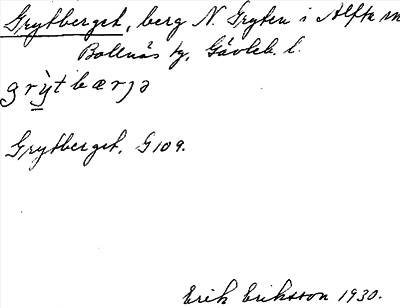 Grytberget, berg N. Gryten i Alfta sn
Bollnäs tg, Gävleb. l.
grỳtbærjə
Grytberget, G109.
Erik Eriksson 1930.